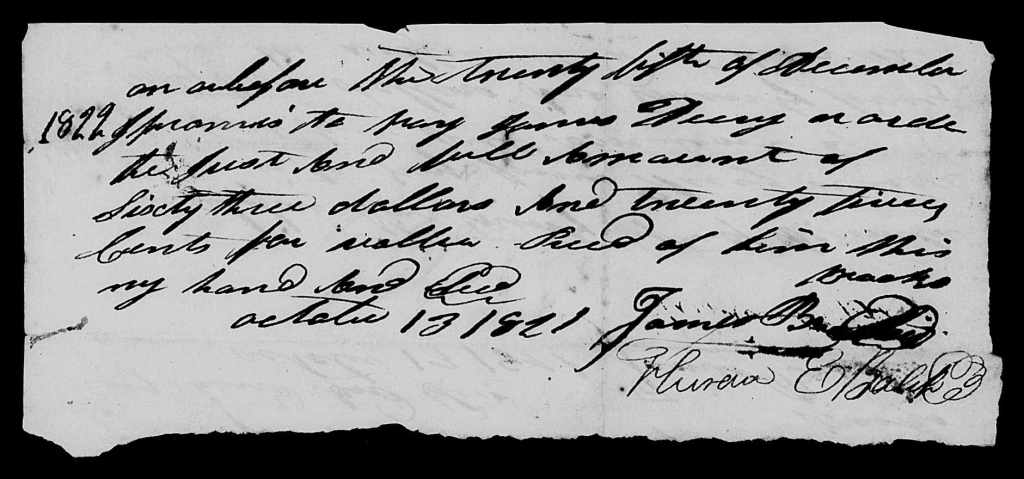 on or before the twenty fifth of december
1822 I promis to pay James Deery or orde
the just And full Amount of
Sixty three dollars And twenty
Cents for vallu Recd of him this
my hand And
octobe 13 1821 James